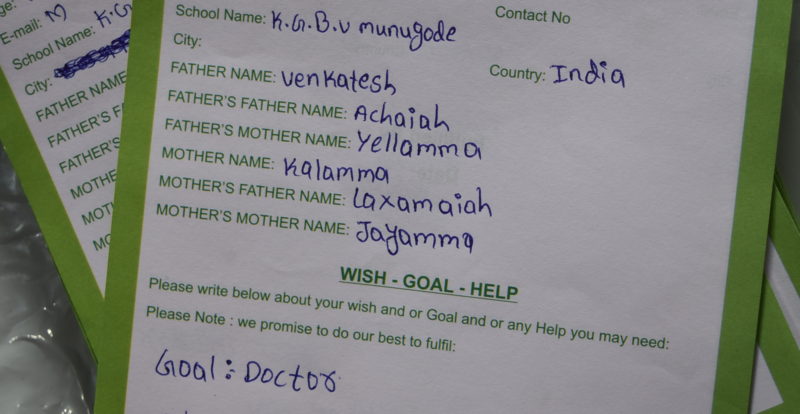 School Name: K.G.B.V munugode
Contact No
City:
FATHER NAME: Venkatesh
Country: India
FATHER'S FATHER NAME: Achaiah
FATHER'S MOTHER NAME: Yellamma
MOTHER NAME: Kalamma
MOTHER'S FATHER NAME: Laxamaiah
MOTHER'S MOTHER NAME: Jayamma
WISH - GOAL - HELP
Please write below about your wish and or Goal and or any Help you may need:
Please Note : we promise to do our best to fulfil:
Goal : Doctor
E-mail: M
School Name: K.G
City:
FATHER NAME
FATHER'S FA
FATHER'S
MOTHE
MOT
MO